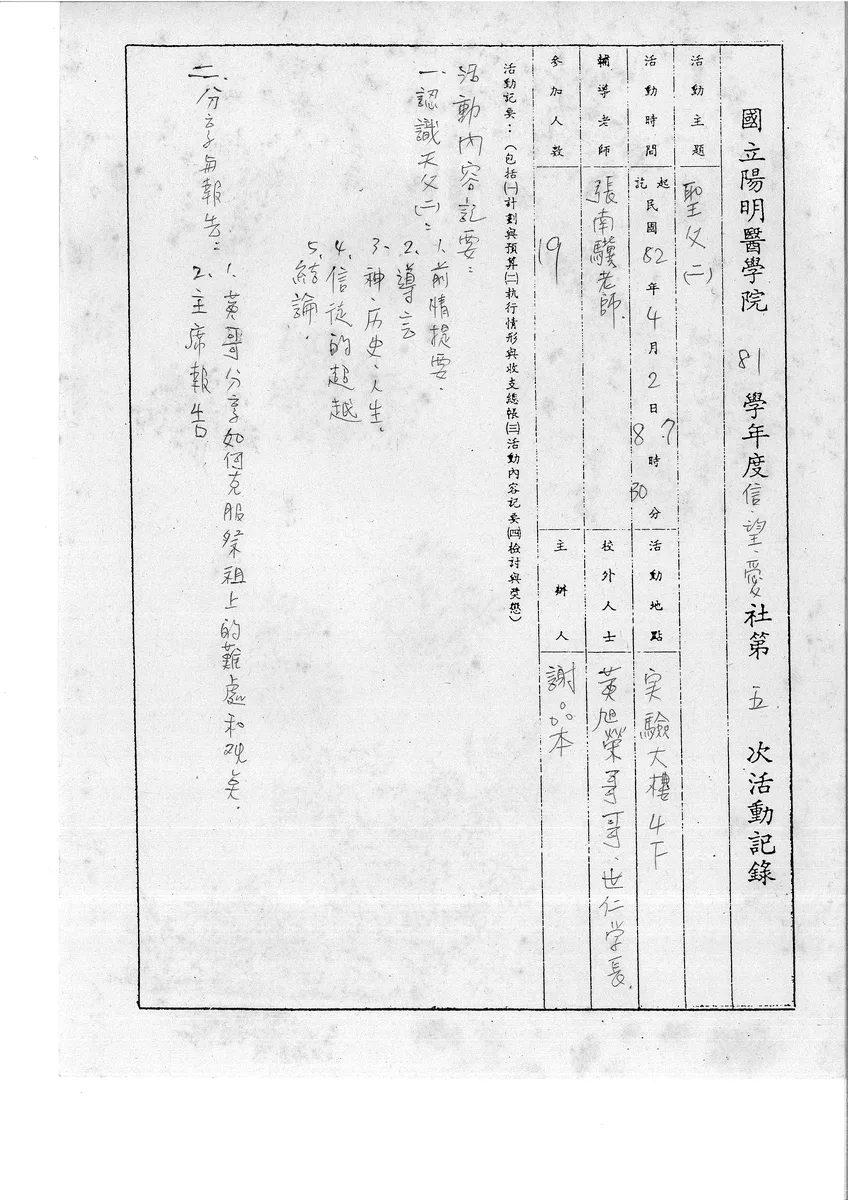 國立陽明醫學院 81 學年度信、望、愛社第 五 次活動記錄
活動主題 聖父(二)
活動時間 起訖 民國 82 年 4 月 2 日 8.7 時 30 分 活動地點 实驗大樓4F
輔導老師 張南驥老師. 校外人士 黃旭榮哥哥、世仁学長.
參加人數 19 主辦人 謝品本
活動記要：（包括㈠計劃與預算㈡執行情形與收支總帳㈢活動內容記要㈣檢討與獎懲）
活動內容記要：
一、認識天父(二)：1.前情提要.
2、導言
3、神、历史、人生.
4、信徒的超越
5、結論.
二、分享與報告：1、英哥分享如何克服祭祖上的難處和观点.
2、主席報告